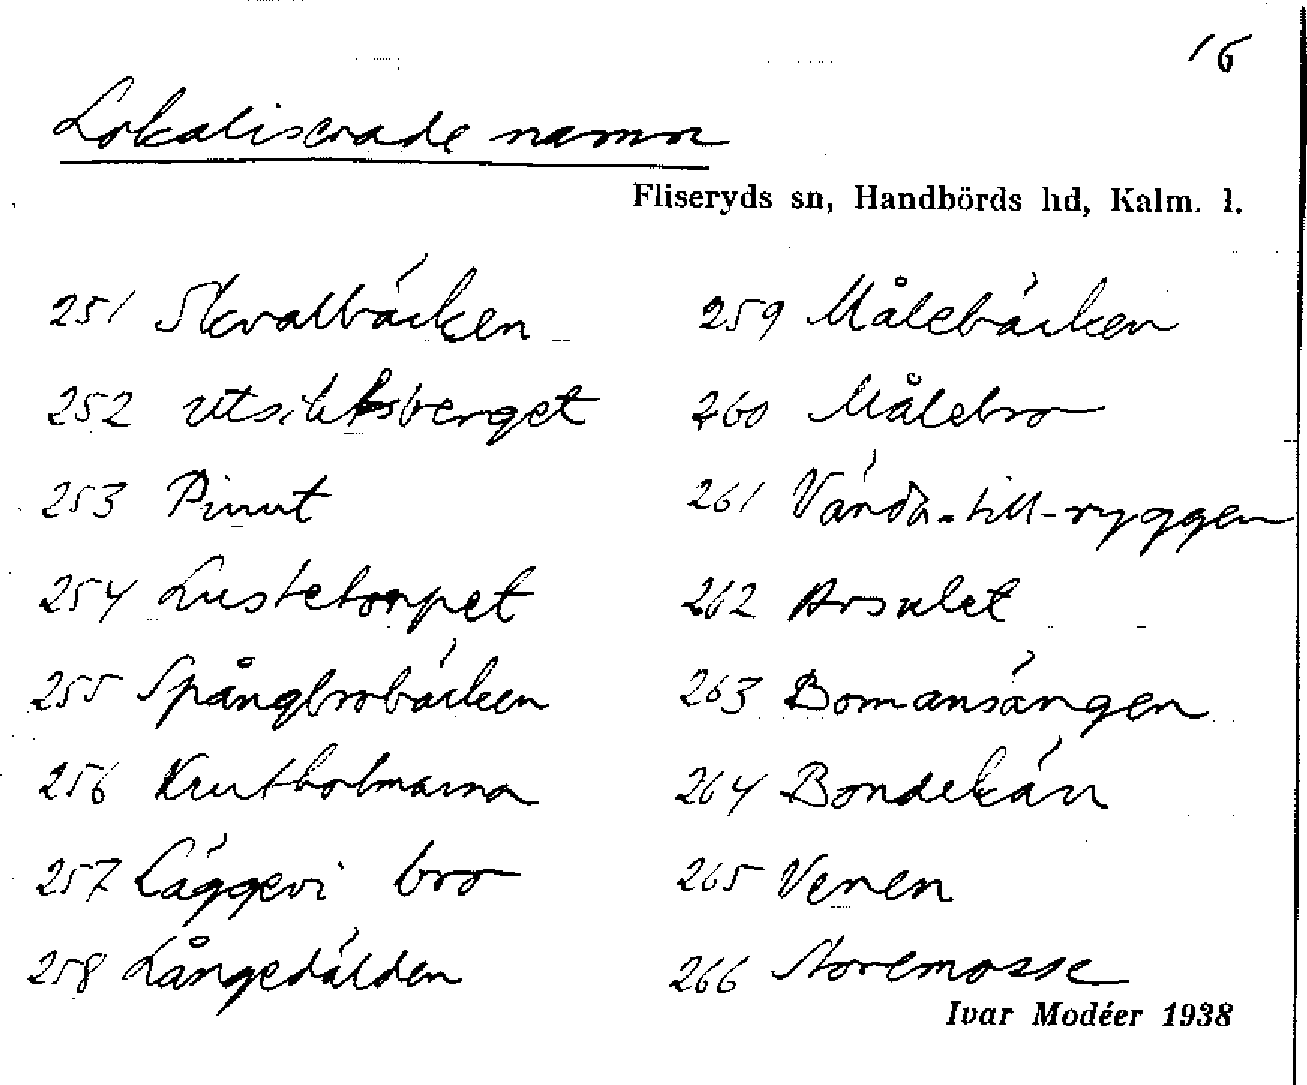 16
Lokaliserade namn
Fliseryds sn, Handbörds hd, Kalm. l.
251 Skvalbäcken
252 Utsiktsberget
253 Pinut
254 Lustetorpet
255 Spångbrobäcken
256 Krutholmarna
257 Läggevi bro
258 Långedälden
259 Målebäcken
260 Målebro
261 Vända-till-ryggen
262 Arsulet
263 Bomansängen
264 Bondekärr
265 Venen
266 Noremosse
Ivar Modéer 1938